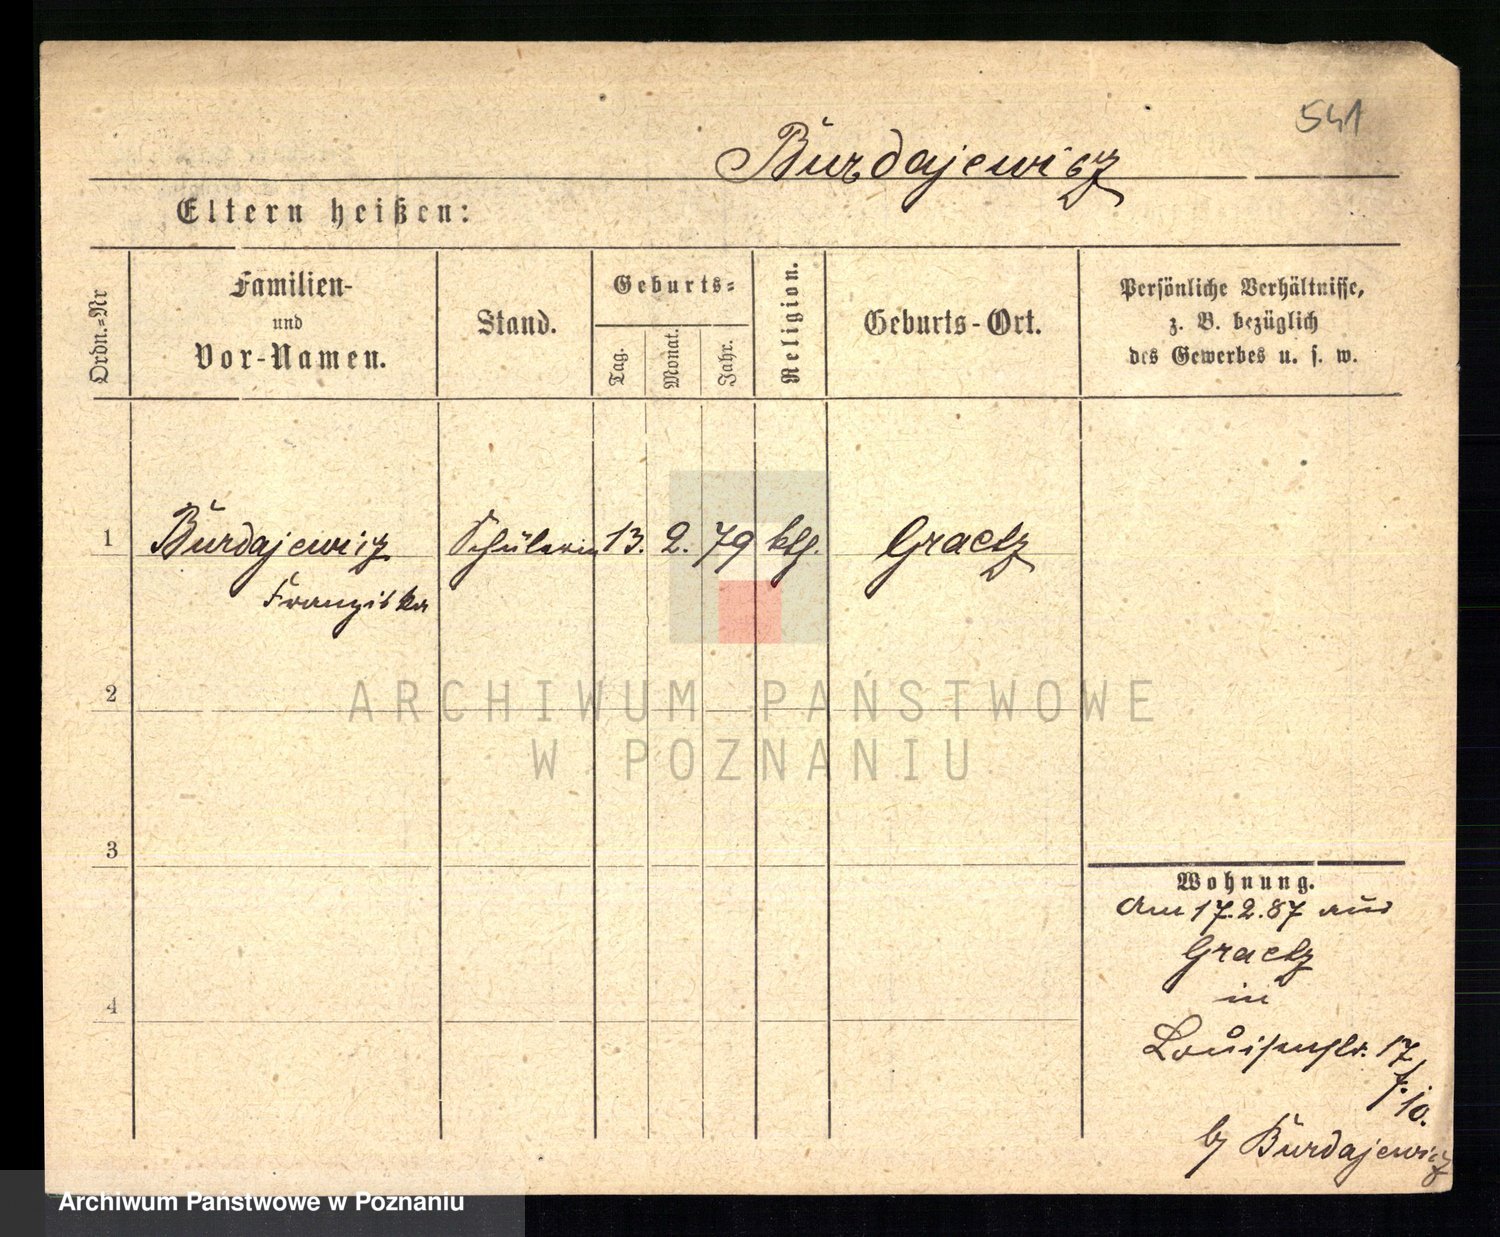 541
Burdajewicz
Eltern heißen:
Ordn.=Nr
Familien-
und
Vor-Namen.
Stand.
Geburts=
Tag.
Monat.
Jahr.
Religion.
Geburts-Ort.
Persönliche Verhältnisse,
z. B. bezüglich
des Gewerbes u. s. w.
1 Burdajewicz Schülerin 13. 2. 79 kth. Graetz
Franziska
2
ARCHIWUM PAŃSTWOWE
W POZNANIU
3
Wohnung.
Am 17.2.87 aus
Graetz
in
4
Louisenstr. 17
10.
by Burdajewicz
Archiwum Państwowe w Poznaniu